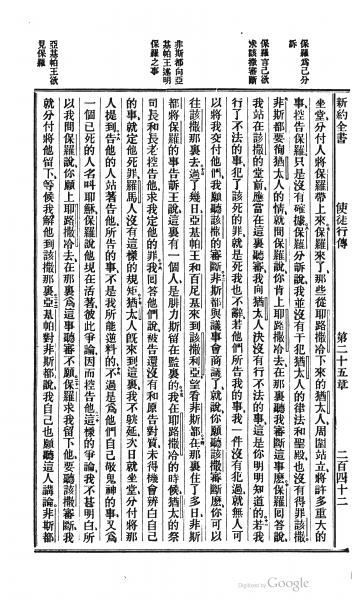 新約全書 使徒行傳 第二十五章 二百四十二
保羅爲己分
訴
保羅言己欲
求該撒審斷
非斯都向亞
基帕王述明
保羅之事
亞基帕王欲
見保羅
坐堂分付人將保羅帶上來保羅來了那些從耶路撒冷下來的猶太人周圍站立將許多重大的
事控告保羅只是沒有確據保羅分訴說我並沒有干犯猶太人的律法和聖殿也沒有得罪該撒
非斯都要徇猶太人的情就問保羅說你肯上耶路撒冷去在那裏聽我審斷這事麽保羅回答說
我站在該撒的堂前應當在這裏聽審我向猶太人決沒有行不法的事這是你明明知道的若我
行了不法的事犯了該死的罪就是死我也不辭若他們所告我的事我一件沒有犯過就無人可
以將我交付他們我願聽該撒的審斷非斯都與議事會商議了就說你願聽該撒審斷麽你可以
往該撒那裏去過了幾日亞基帕王和百尼基來到該撒利亞望看非斯都在那裏住了多日非斯
都將保羅的事告訴王說這裏有一個人是腓力斯留在監裏的我在耶路撒冷的時候猶太的祭
司長和長老控告他求我定他的罪我回答他們說被告還沒有和原告對質未得機會辨白自己
的事就定他死罪羅馬人沒有這樣的規矩猶太人既來到這裏我不躭延次日就坐堂分付將那
人提到告他的人站着告他所告的事不是我所能逆料的不過是爲他們自己敬鬼神的事又爲
一個已死的人名叫耶穌保羅說他現在活著彼此爭論因而控告他這樣的爭論我不甚明白所
以我問保羅說你願上耶路撒冷去在那裏爲這事聽審不願保羅求我留下他要聽該撒審斷我
就分付將他留下等候我解他到該撒那裏亞基帕對非斯都說我自己也願聽這人講論非斯都
Digitized by Google